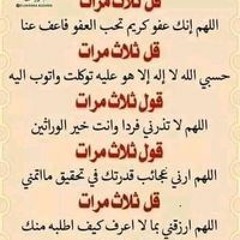 قل ثلاث مرات
اللهم إنك عفو كريم تحب العفو فاعف عنا
قل ثلاث مرات
حسبي الله لا إله إلا هو عليه توكلت واتوب اليه
قول ثلاث مرات
اللهم لا تذرني فردا وانت خير الوراثين
قول ثلاث مرات
اللهم ارني عجائب قدرتك في تحقيق مااتمنى
قل ثلاث مرات
اللهم ارزقني بما لا اعرف كيف اطلبه منك